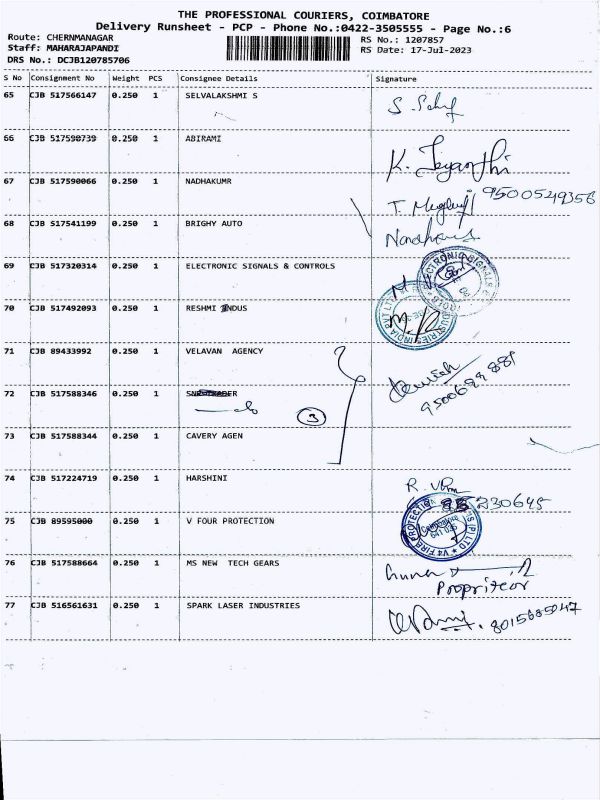 THE PROFESSIONAL COURIERS, COIMBATORE
Delivery Runsheet - PCP - Phone No.:0422-3505555 - Page No.:6
Route: CHERNMANAGAR RS No.: 1207857
Staff: MAHARAJAPANDI RS Date: 17-Jul-2023
DRS No.: DCJB120785706
S No Consignment No Weight PCS Consignee Details Signature
65 CJB 517566147 0.250 1 SELVALAKSHMI S
66 CJB 517590739 0.250 1 ABIRAMI K. Jeyanthi
67 CJB 517590066 0.250 1 NADHAKUMR 9500549356
68 CJB 517541199 0.250 1 BRIGHY AUTO
69 CJB 517320314 0.250 1 ELECTRONIC SIGNALS & CONTROLS
70 CJB 517492093 0.250 1 RESHMI INDUS
71 CJB 89433992 0.250 1 VELAVAN AGENCY
72 CJB 517588346 0.250 1
3
73 CJB 517588344 0.250 1 CAVERY AGEN
74 CJB 517224719 0.250 1 HARSHINI
230645
75 CJB 89595000 0.250 1 V FOUR PROTECTION
76 CJB 517588664 0.250 1 MS NEW TECH GEARS
Propriteor
77 CJB 516561631 0.250 1 SPARK LASER INDUSTRIES